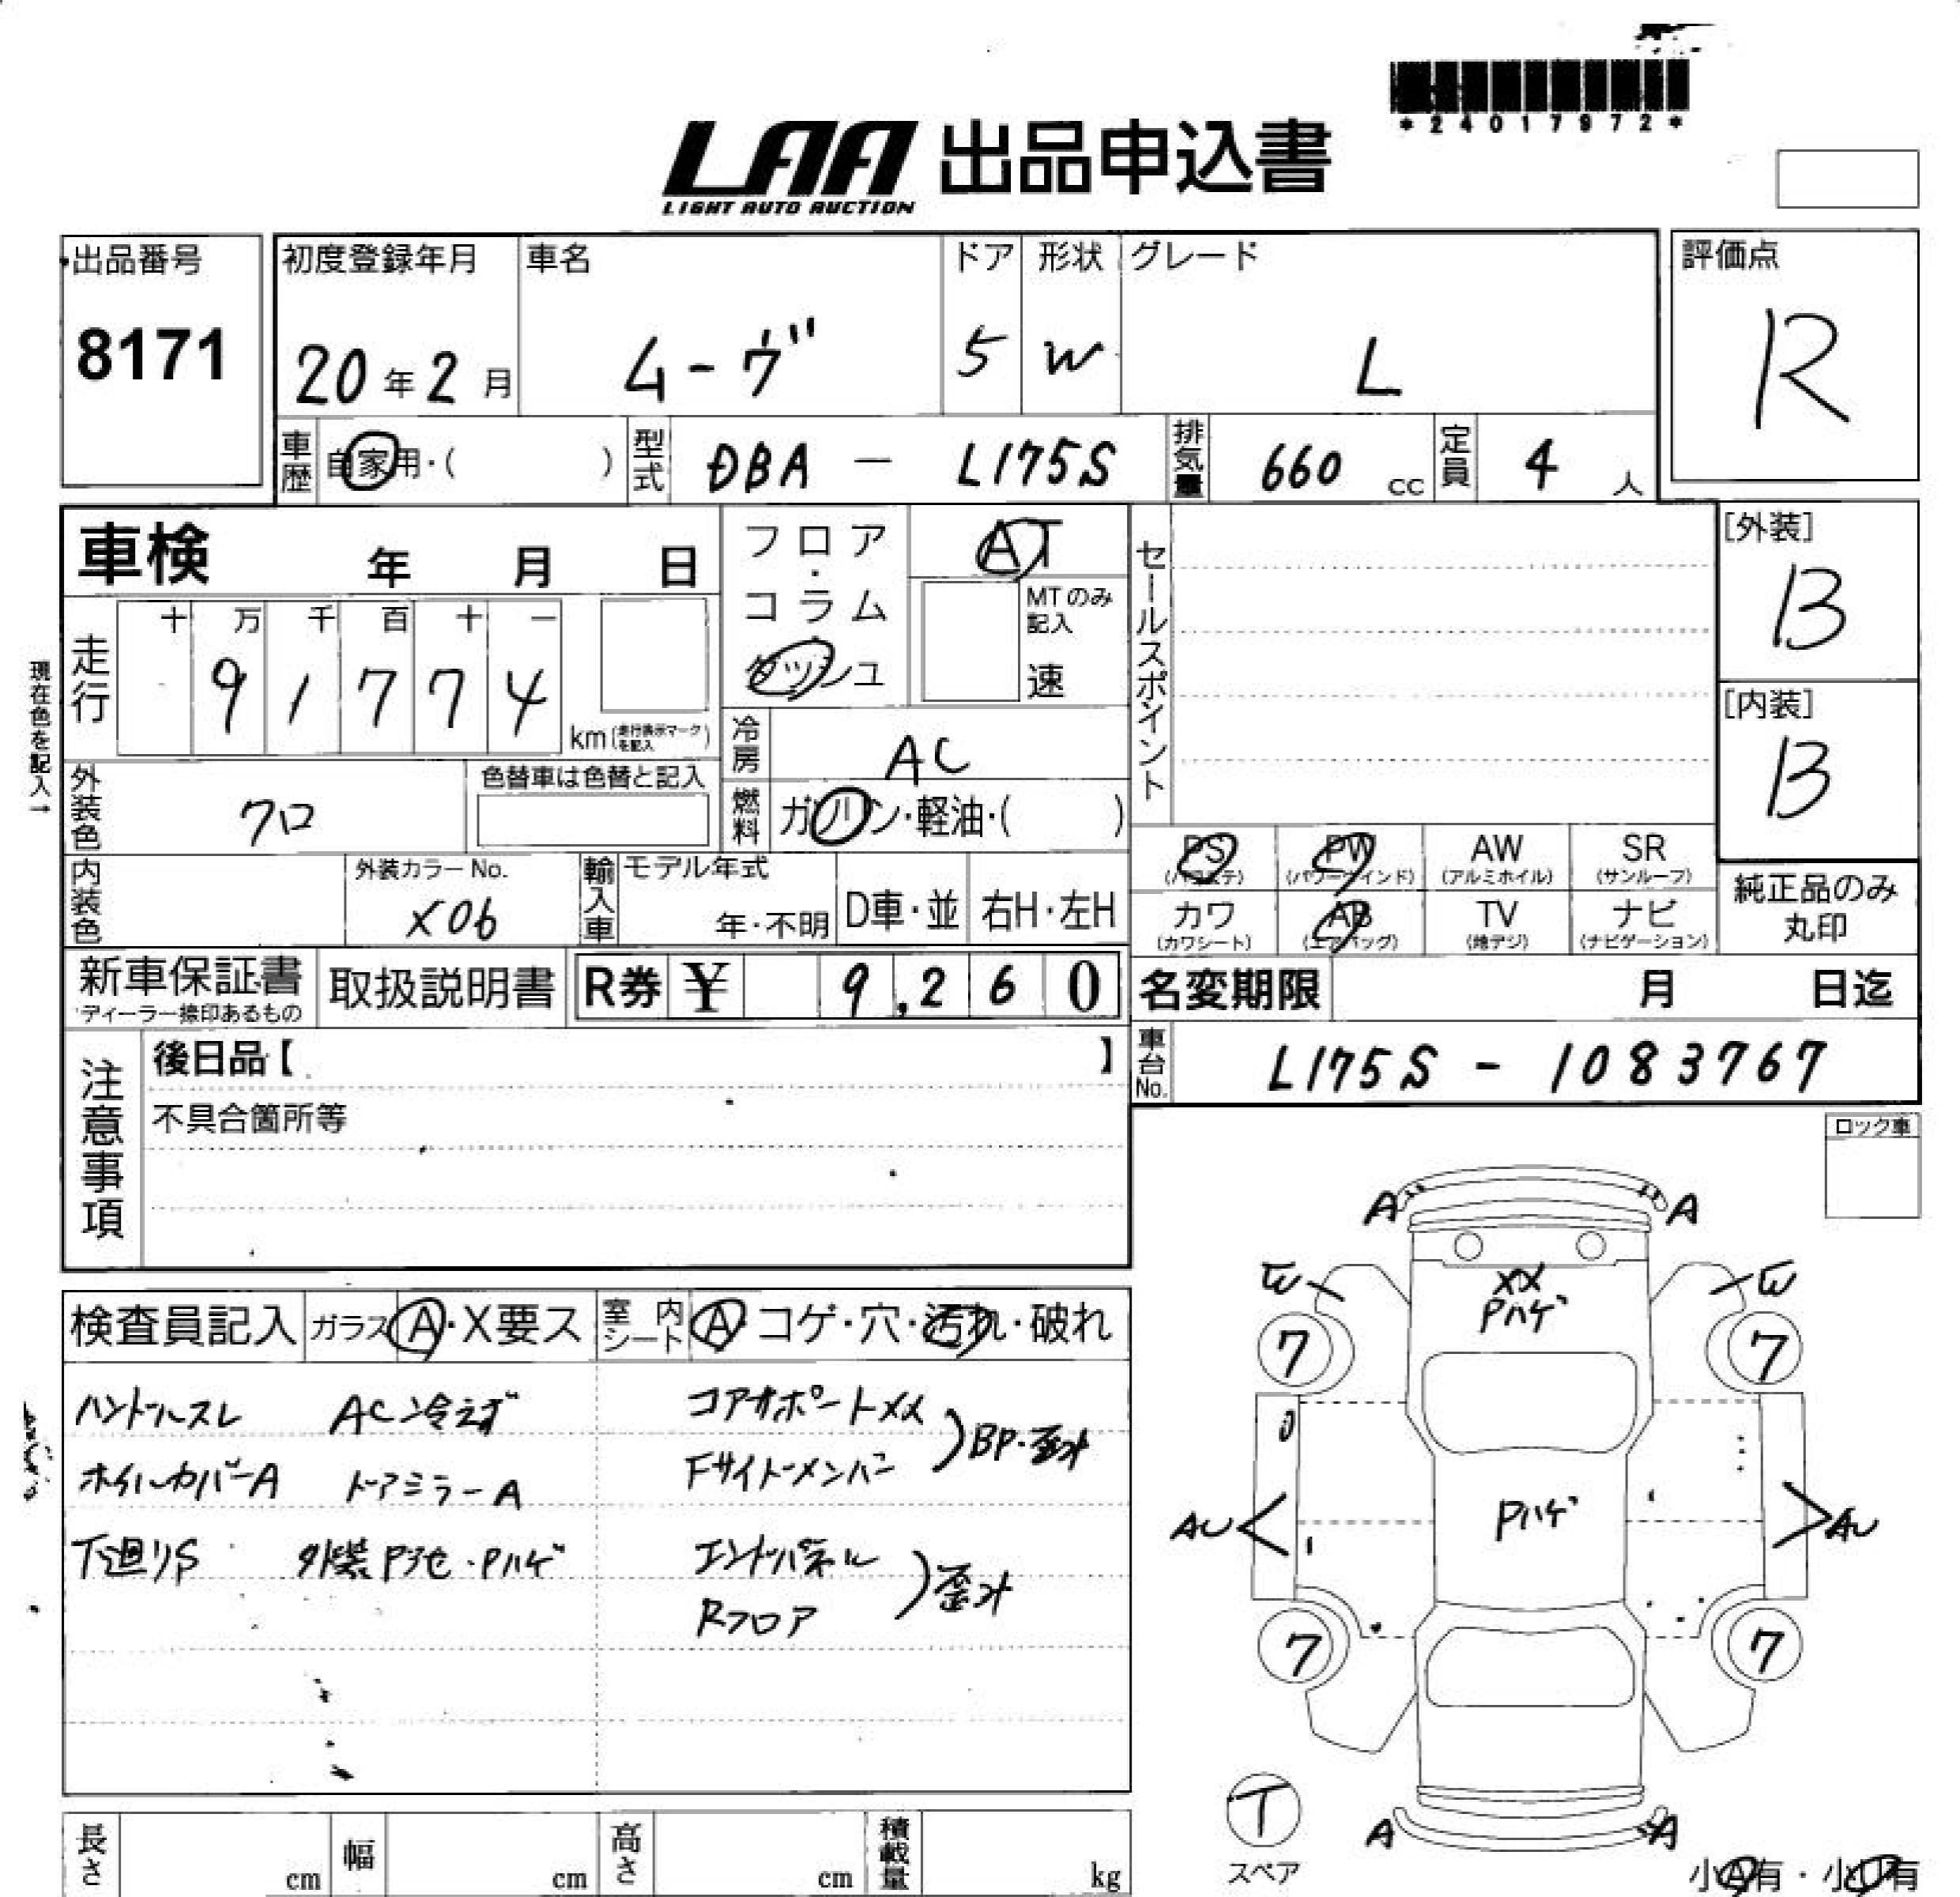 *24017972*
LAA 出品申込書
LIGHT AUTO AUCTION
出品番号
8171
初度登録年月
20年2月
車名
ムーヴ
ドア
5
形状
W
グレード
L
評価点
R
車歴 自家用・( )
型式 DBA - L175S
排気量 660 cc
定員 4 人
車検 年 月 日
フロア・コラム・ダッシュ
AT
MTのみ記入
速
セールスポイント
[外装]
B
[内装]
B
現在色を記入→
走行
十 万 千 百 十 一
9 1 7 7 4
km(走行表示マークを記入)
冷房 AC
燃料 ガソリン・軽油・( )
外装色 クロ
色替車は色替と記入
内装色
外装カラーNo.
X06
輸入車 モデル年式
年・不明
D車・並
右H・左H
PS (パワステ)
PW (パワーウインド)
AW (アルミホイル)
SR (サンルーフ)
カワ (カワシート)
AB (エアバッグ)
TV (地デジ)
ナビ (ナビゲーション)
純正品のみ丸印
新車保証書
ディーラー捺印あるもの
取扱説明書
R券 ¥ 9,260
名変期限 月 日迄
車台No. L175S - 1083767
注意事項
後日品【 】
不具合箇所等
ロック車
検査員記入
ガラス A・X要ス
室内シート A・コゲ・穴・汚れ・破れ
ハンドルスレ AC冷えず
ホイルカバーA ドアミラーA
下廻りS 外装P・Pハゲ
コアサポートXX
Fサイドメンバー
)BP・歪み
エンドパネル
Rフロア
)歪み
A A
E E
XX
Pハゲ
7 7
AU Pハゲ AU
7 7
T
スペア
A A
小A有・小U有
長さ cm
幅 cm
高さ cm
積載量 kg